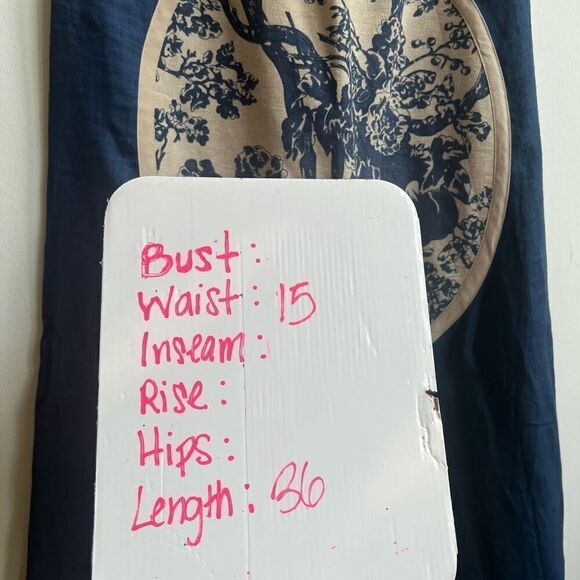 Bust:
Waist: 15
Inseam:
Rise:
Hips:
Length: 36